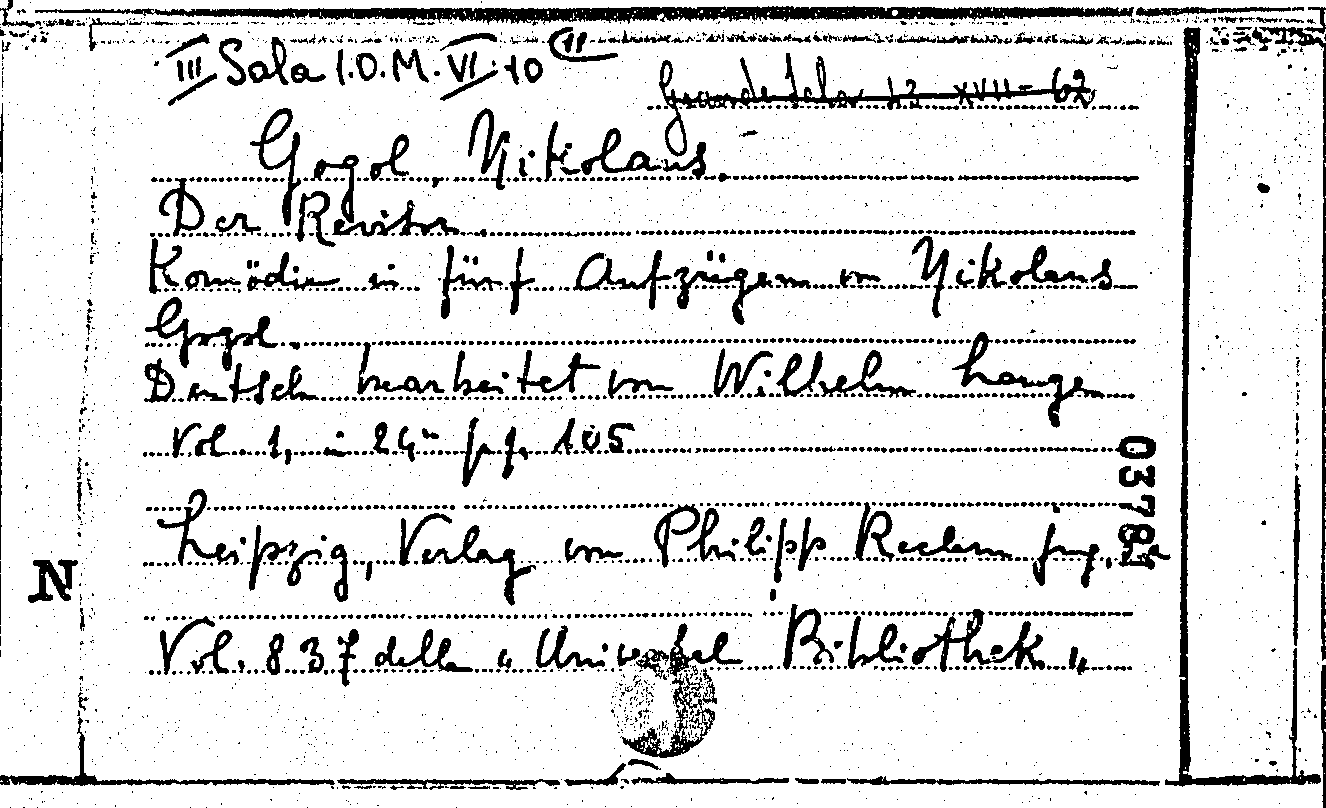 III Sala I.O.M. VI. 10 (11
Grande Sala 13 XVII - 62
Gogol, Nikolaus.
Der Revisor.
Komödie in fünf Aufzügen von Nikolaus
Gogol.
Deutsch bearbeitet von Wilhelm Lange
Vol. 1, in 24° pp. 105
03781
Leipzig, Verlag von Philipp Reclam jug,
N
Vol. 837 della "Universal Bibliothek"